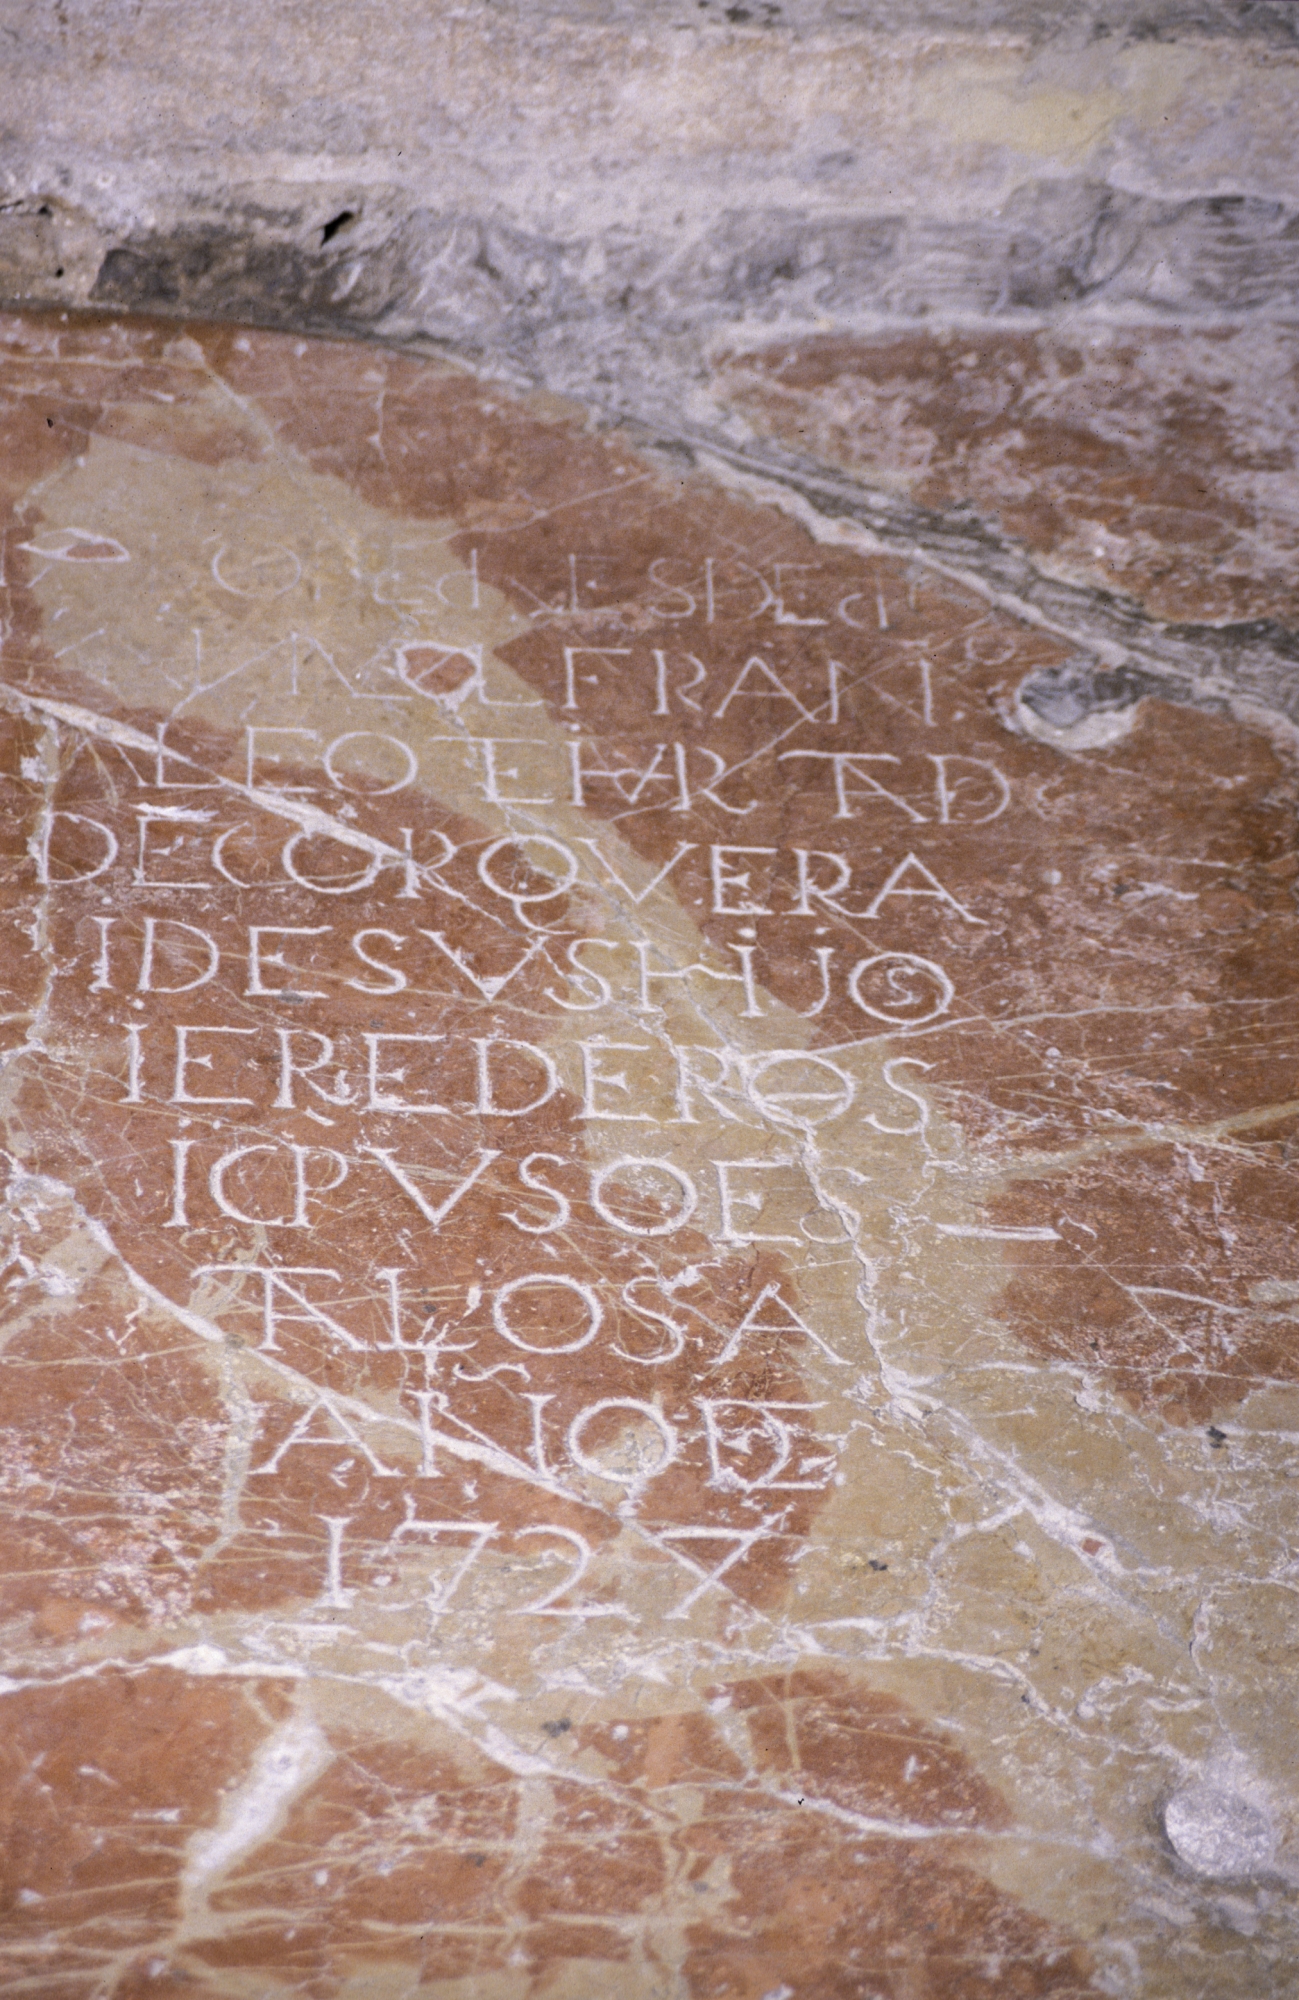 ESDE
FRAN
LEOTEHVRTAD
DECOROVERA
IDESVSHIJOS
IEREDEROS
ICPVSOES
TALOSSA
ANODE
1727